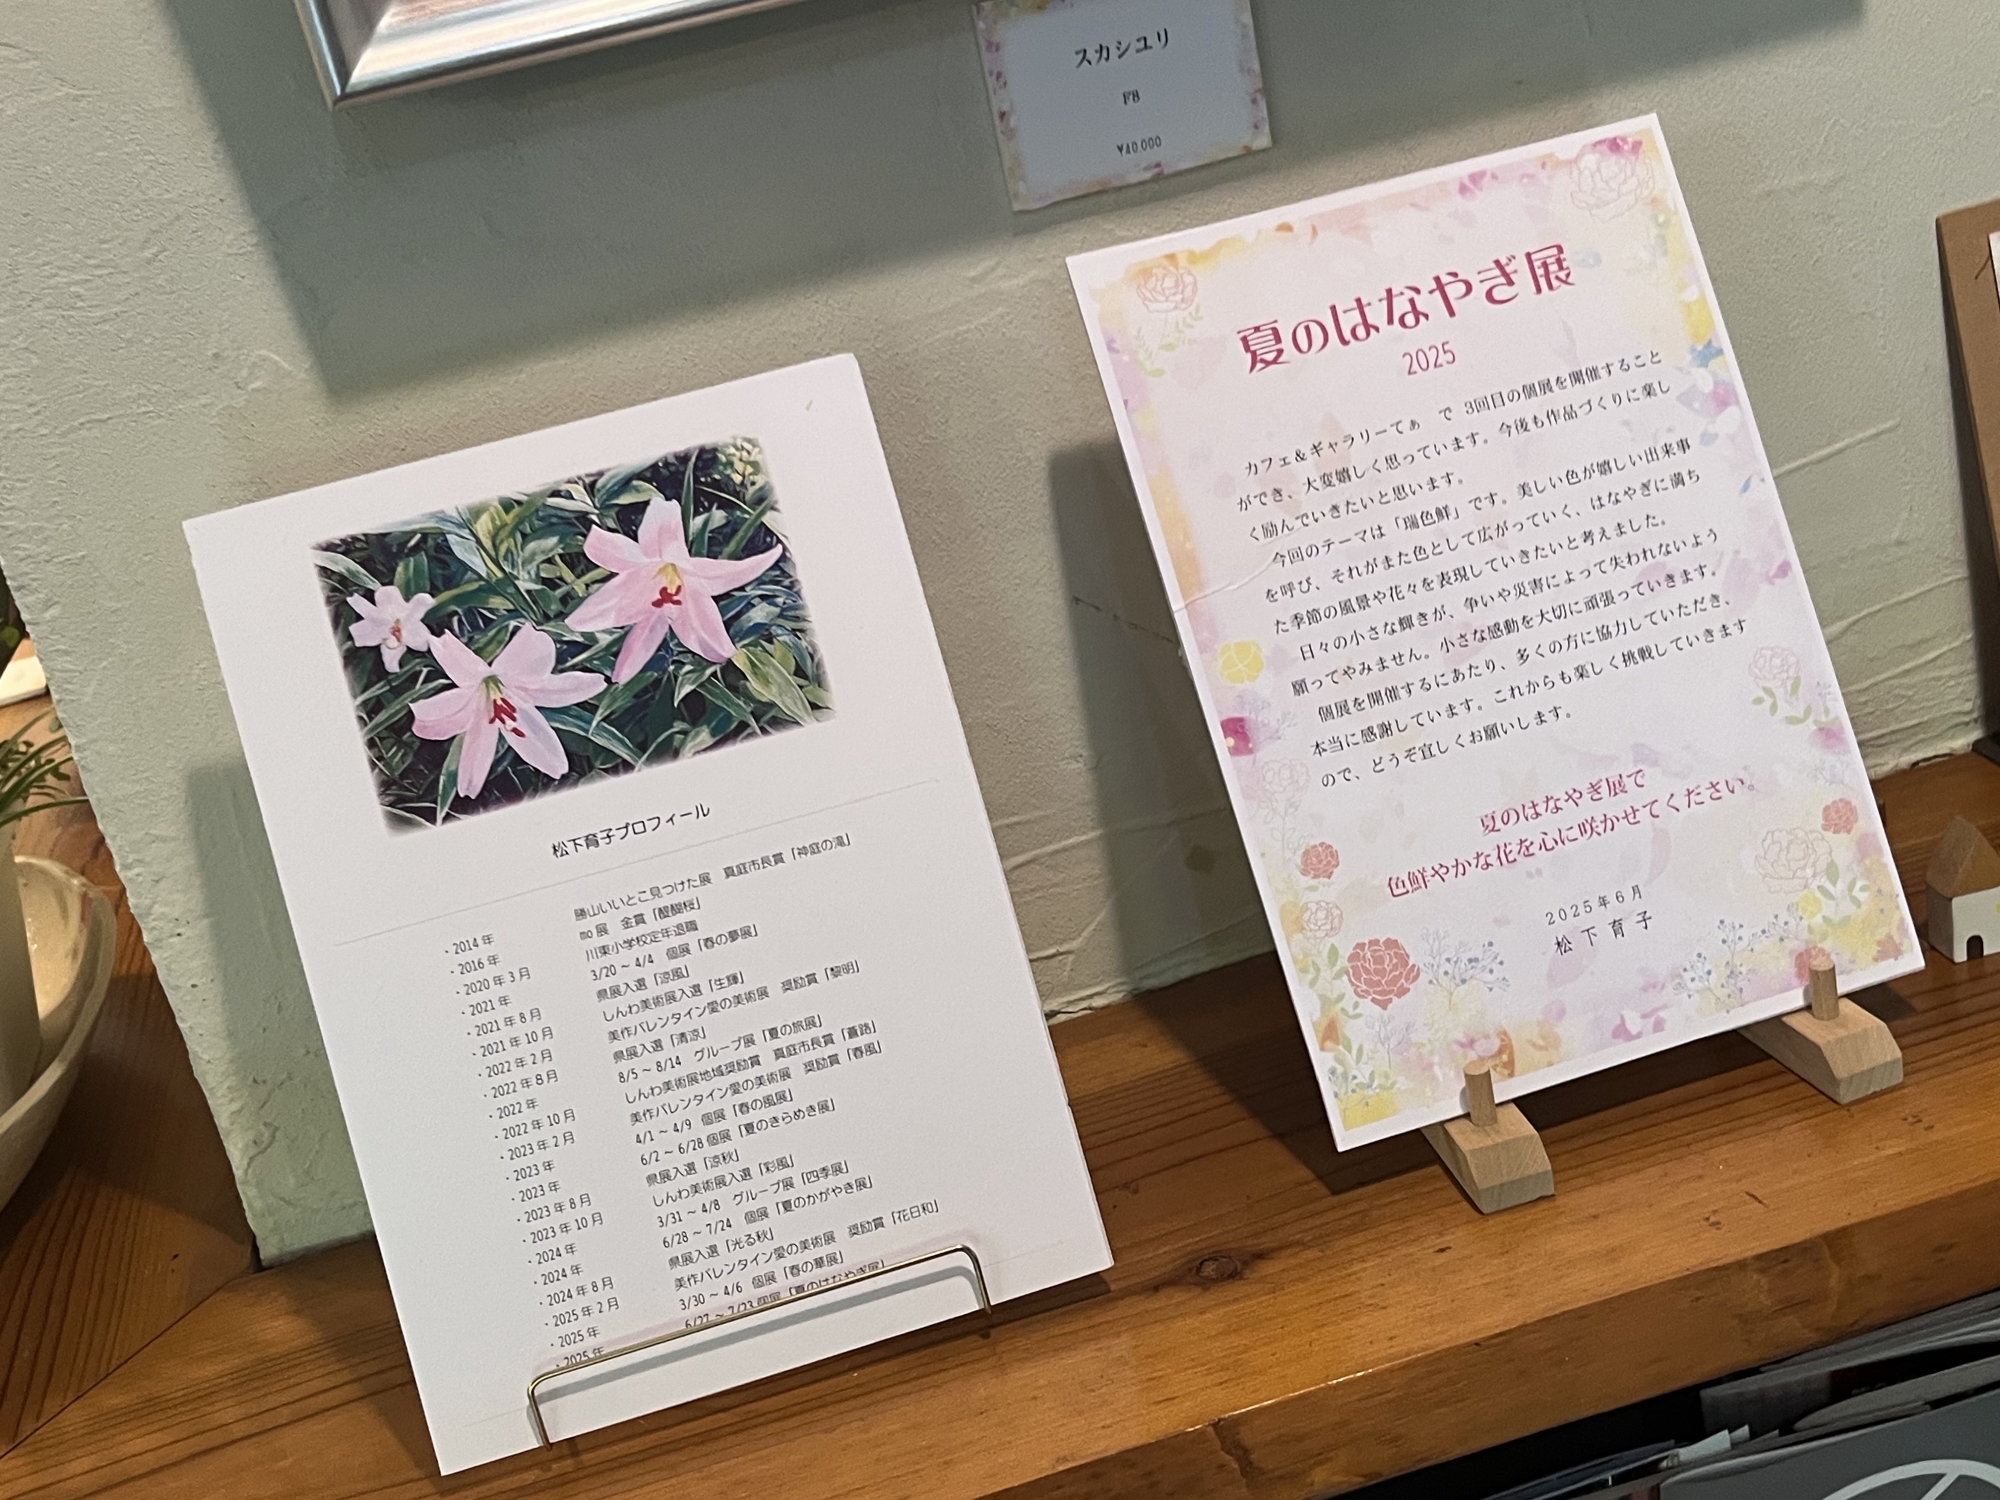 スカシユリ
F8
¥40,000
松下育子プロフィール
・2014年 勝山いいとこ見つけた展 真庭市長賞「神庭の滝」
・2016年 mo展 金賞「醍醐桜」
・2020年3月 川東小学校定年退職
・2021年 3/20～4/4 個展「春の夢展」
・2021年8月 県展入選「涼風」
・2021年10月 しんわ美術展入選「生輝」
・2022年2月 美作バレンタイン愛の美術展 奨励賞「黎明」
・2022年8月 県展入選「清涼」
・2022年 8/5～8/14 グループ展「夏の旅展」
・2022年10月 しんわ美術展地域奨励賞 真庭市長賞「蒼路」
・2023年2月 美作バレンタイン愛の美術展 奨励賞「春風」
・2023年 4/1～4/9 個展「春の風展」
・2023年 6/2～6/28個展「夏のきらめき展」
・2023年8月 県展入選「涼秋」
・2023年10月 しんわ美術展入選「彩風」
・2024年 3/31～4/8 グループ展「四季展」
・2024年 6/28～7/24 個展「夏のかがやき展」
・2024年8月 県展入選「光る秋」
・2025年2月 美作バレンタイン愛の美術展 奨励賞「花日和」
・2025年 3/30～4/6 個展「春の華展」
・2025年 6/27～7/23個展「夏のはなやぎ展」
夏のはなやぎ展
2025
カフェ&ギャラリーてぁ で 3回目の個展を開催すること
ができ、大変嬉しく思っています。今後も作品づくりに楽し
く励んでいきたいと思います。
今回のテーマは「瑞色鮮」です。美しい色が嬉しい出来事
を呼び、それがまた色として広がっていく、はなやぎに満ち
た季節の風景や花々を表現していきたいと考えました。
日々の小さな輝きが、争いや災害によって失われないよう
願ってやみません。小さな感動を大切に頑張っていきます。
個展を開催するにあたり、多くの方に協力していただき、
本当に感謝しています。これからも楽しく挑戦していきます
ので、どうぞ宜しくお願いします。
夏のはなやぎ展で
色鮮やかな花を心に咲かせてください。
2025年6月
松下育子